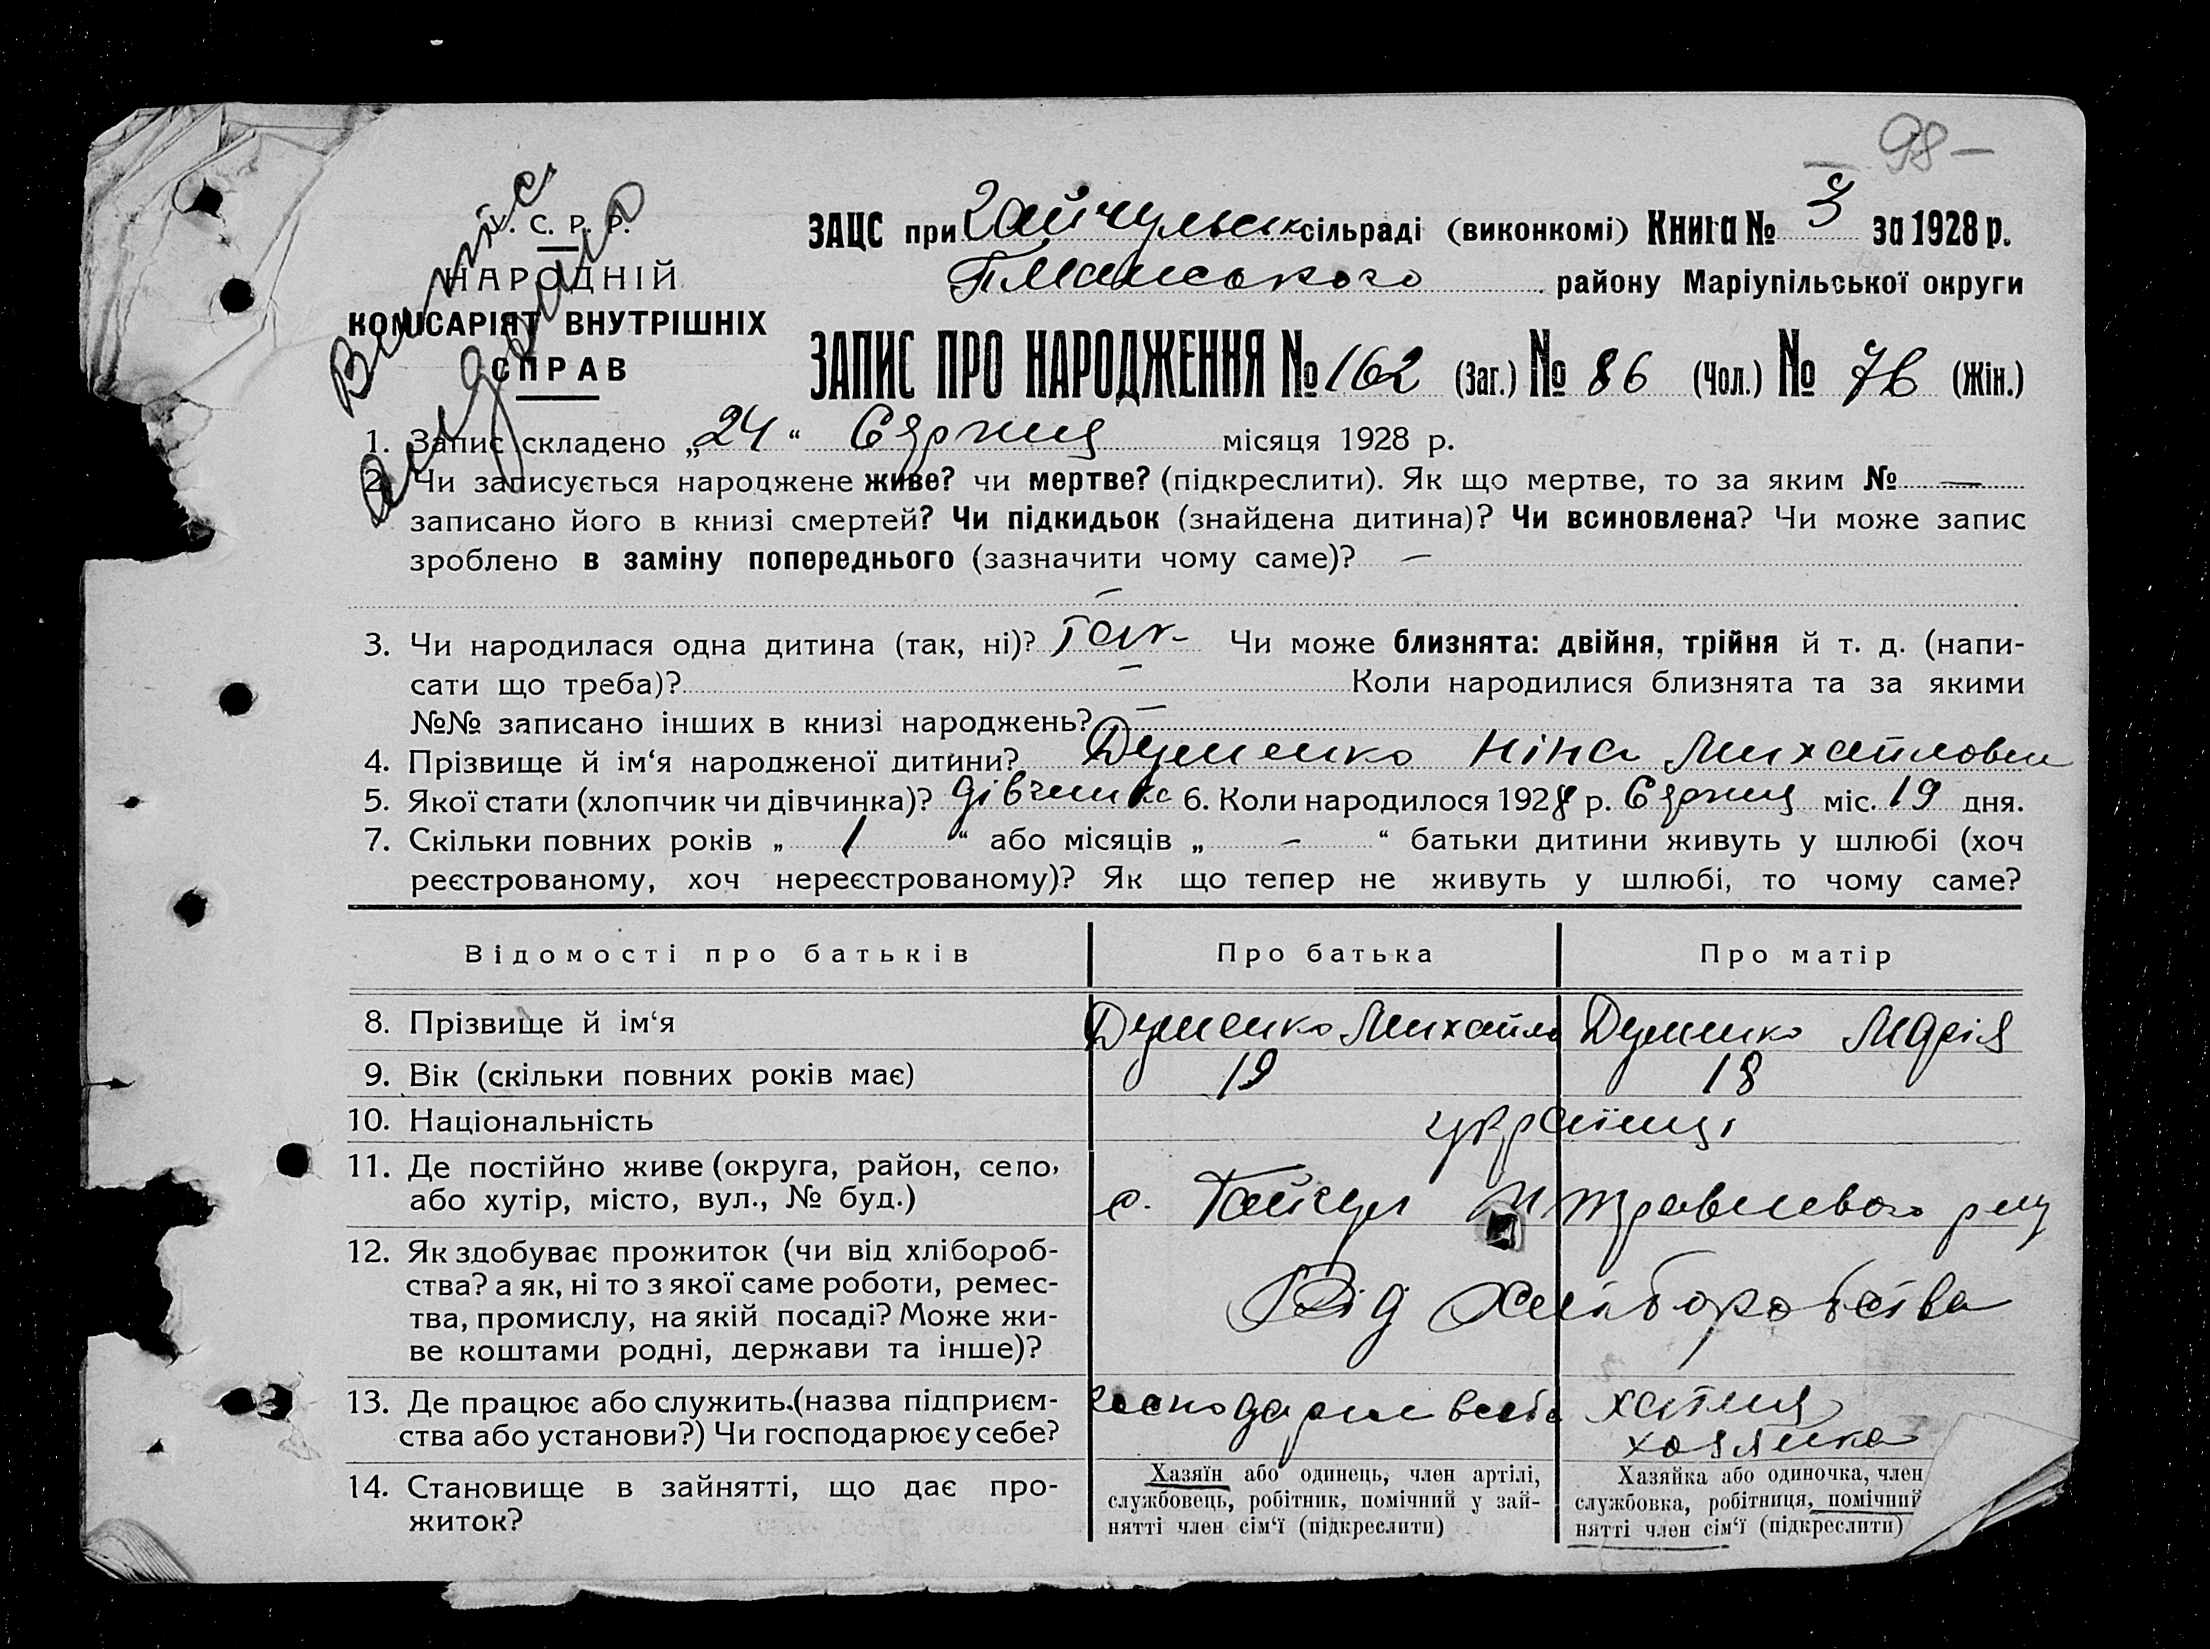 98
Витпис видано
У. С. Р. Р.
НАРОДНІЙ
КОМІСАРІЯТ ВНУТРІШНІХ
СПРАВ
ЗАЦС при Гайчульск сільраді (виконкомі) Книга № 3 за 1928 р.
району Маріупільської округи
ЗАПИС ПРО НАРОДЖЕННЯ № 162 (Заг.) № 86 (Чол.) № 76 (Жін.)
1. Запис складено „24“ Серпня місяця 1928 р.
2. Чи записується народжене живе? чи мертве? (підкреслити). Як що мертве, то за яким № —
записано його в книзі смертей? Чи підкидьок (знайдена дитина)? Чи всиновлена? Чи може запис
зроблено в заміну попереднього (зазначити чому саме)? —
—
3. Чи народилася одна дитина (так, ні)? Так Чи може близнята: двійня, трійня й т. д. (напи-
сати що треба)? — Коли народилися близнята та за якими
№№ записано інших в книзі народжень? —
4. Прізвище й ім‘я народженої дитини? Думенко Ніна Михайловна
5. Якої стати (хлопчик чи дівчинка)? дівчинка 6. Коли народилося 1928 р. Серпня міс. 19 дня.
7. Скільки повних років „ 1 “ або місяців „ - “ батьки дитини живуть у шлюбі (хоч
реєстрованому, хоч нереєстрованому)? Як що тепер не живуть у шлюбі, то чому саме?
Відомості про батьків Про батька Про матір
8. Прізвище й ім‘я Думенко Михайло Думенко Марія
9. Вік (скільки повних років має) 19 18
10. Національність українці
11. Де постійно живе (округа, район, село,
або хутір, місто, вул., № буд.) с. Гайчул
12. Як здобуває прожиток (чи від хлібороб-
ства? а як, ні то з якої саме роботи, ремес-
тва, промислу, на якій посаді? Може жи-
ве коштами родні, держави та інше)? Від Хліборобства
13. Де працює або служить.(назва підприєм-
ства або установи?) Чи господарює у себе? господарює в себе хатня
хазяйка
14. Становище в зайнятті, що дає про-
житок?
Хазяїн або одинець, член артілі,
службовець, робітник, помічний у зай-
нятті член сім‘ї (підкреслити)
Хазяйка або одиночка, член
службовка, робітниця, помічний
нятті член сім‘ї (підкреслити)